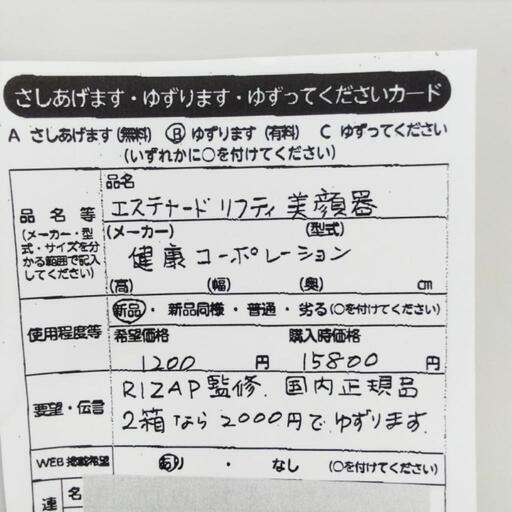 さしあげます・ゆずります・ゆずってくださいカード
A さしあげます(無料) Ⓑ ゆずります(有料) C ゆずってください
(いずれかに○を付けてください)
品名等
(メーカー・型式・サイズを分かる範囲で記入してください)
品名
エステナード リフティ 美顔器
(メーカー) (型式)
健康コーポレーション
(高) (幅) (奥) cm
使用程度等
新品・新品同様・普通・劣る(○を付けてください)
希望価格 購入時価格
1200円 15800円
要望・伝言
RIZAP監修.国内正規品
2箱なら2000円でゆずります.
WEB掲載希望
あり・なし (○を付けてください)
連
名